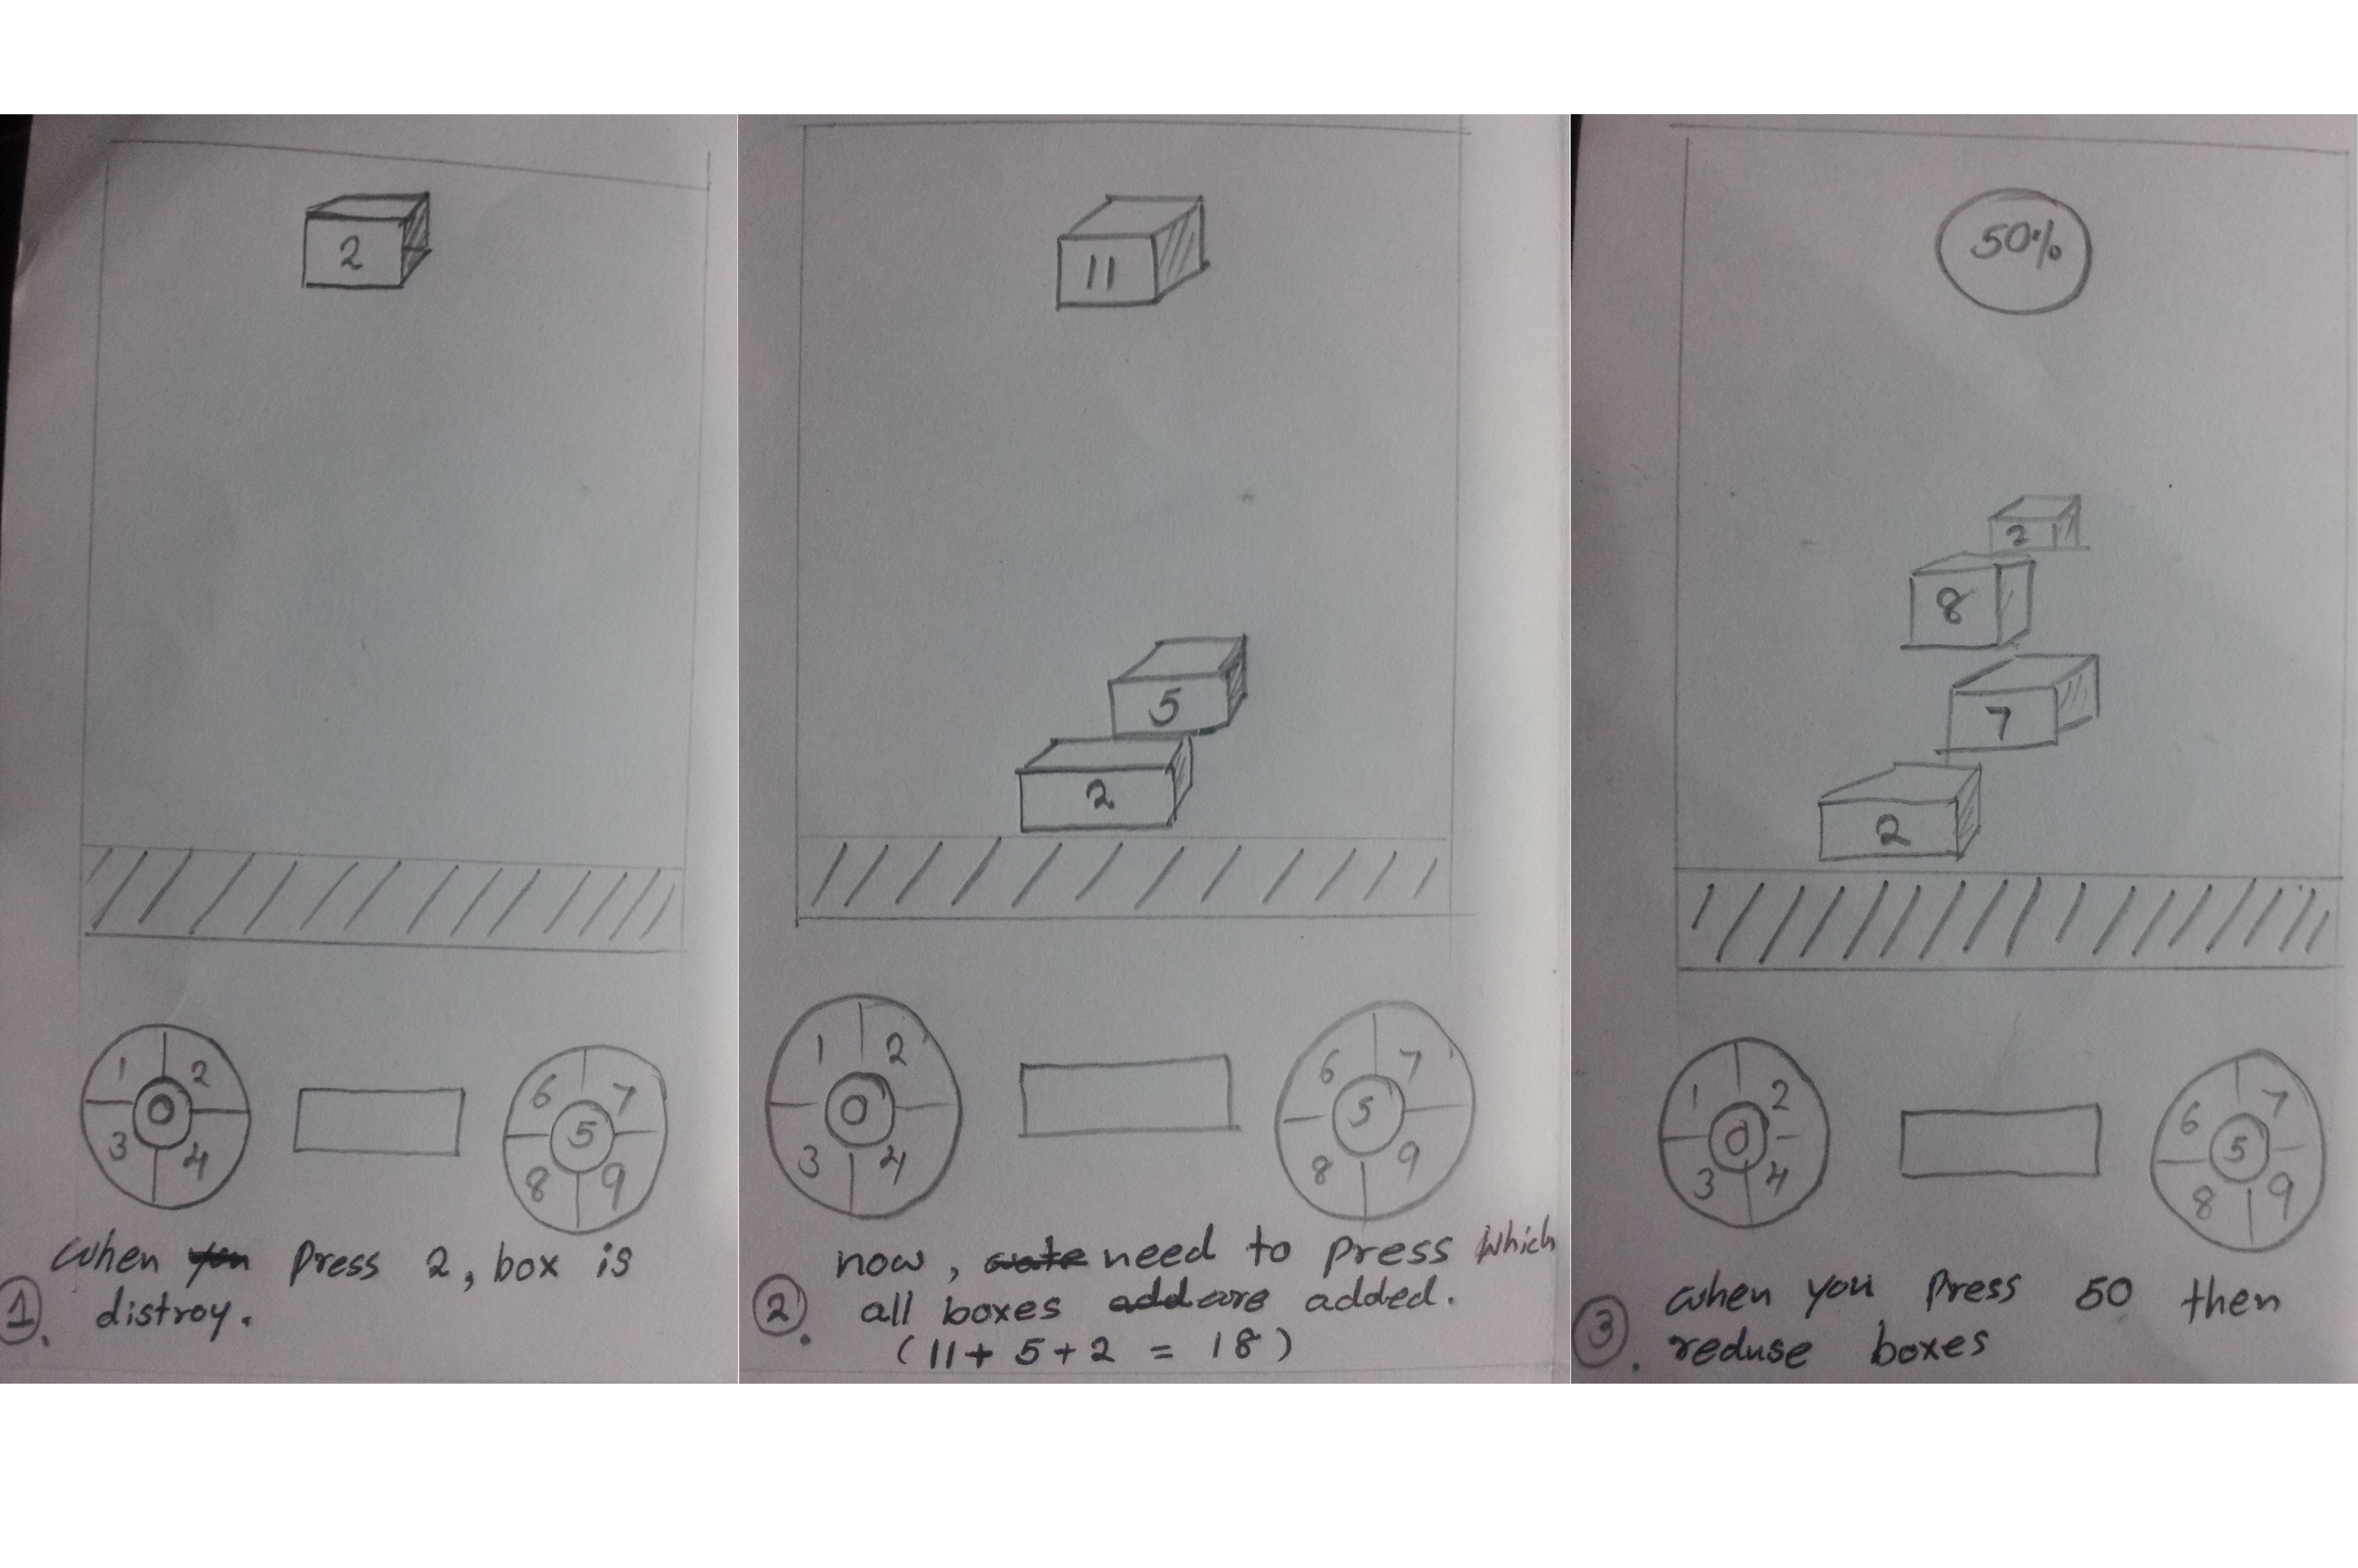 2
1 2
0
3 4
6 7
5
8 9
when you Press 2, box is
1. distroy.
11
5
2
1 2
0
3 4
6 7
5
8 9
now, need to press which
2. all boxes add are added.
(11+ 5+2 = 18)
50%
2
8
7
2
1 2
0
3 4
6 7
5
8 9
when you Press 50 then
3. reduse boxes